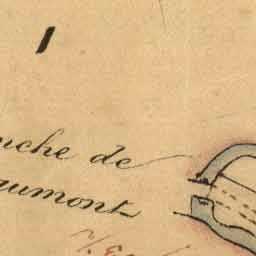 1
uche de
aumont